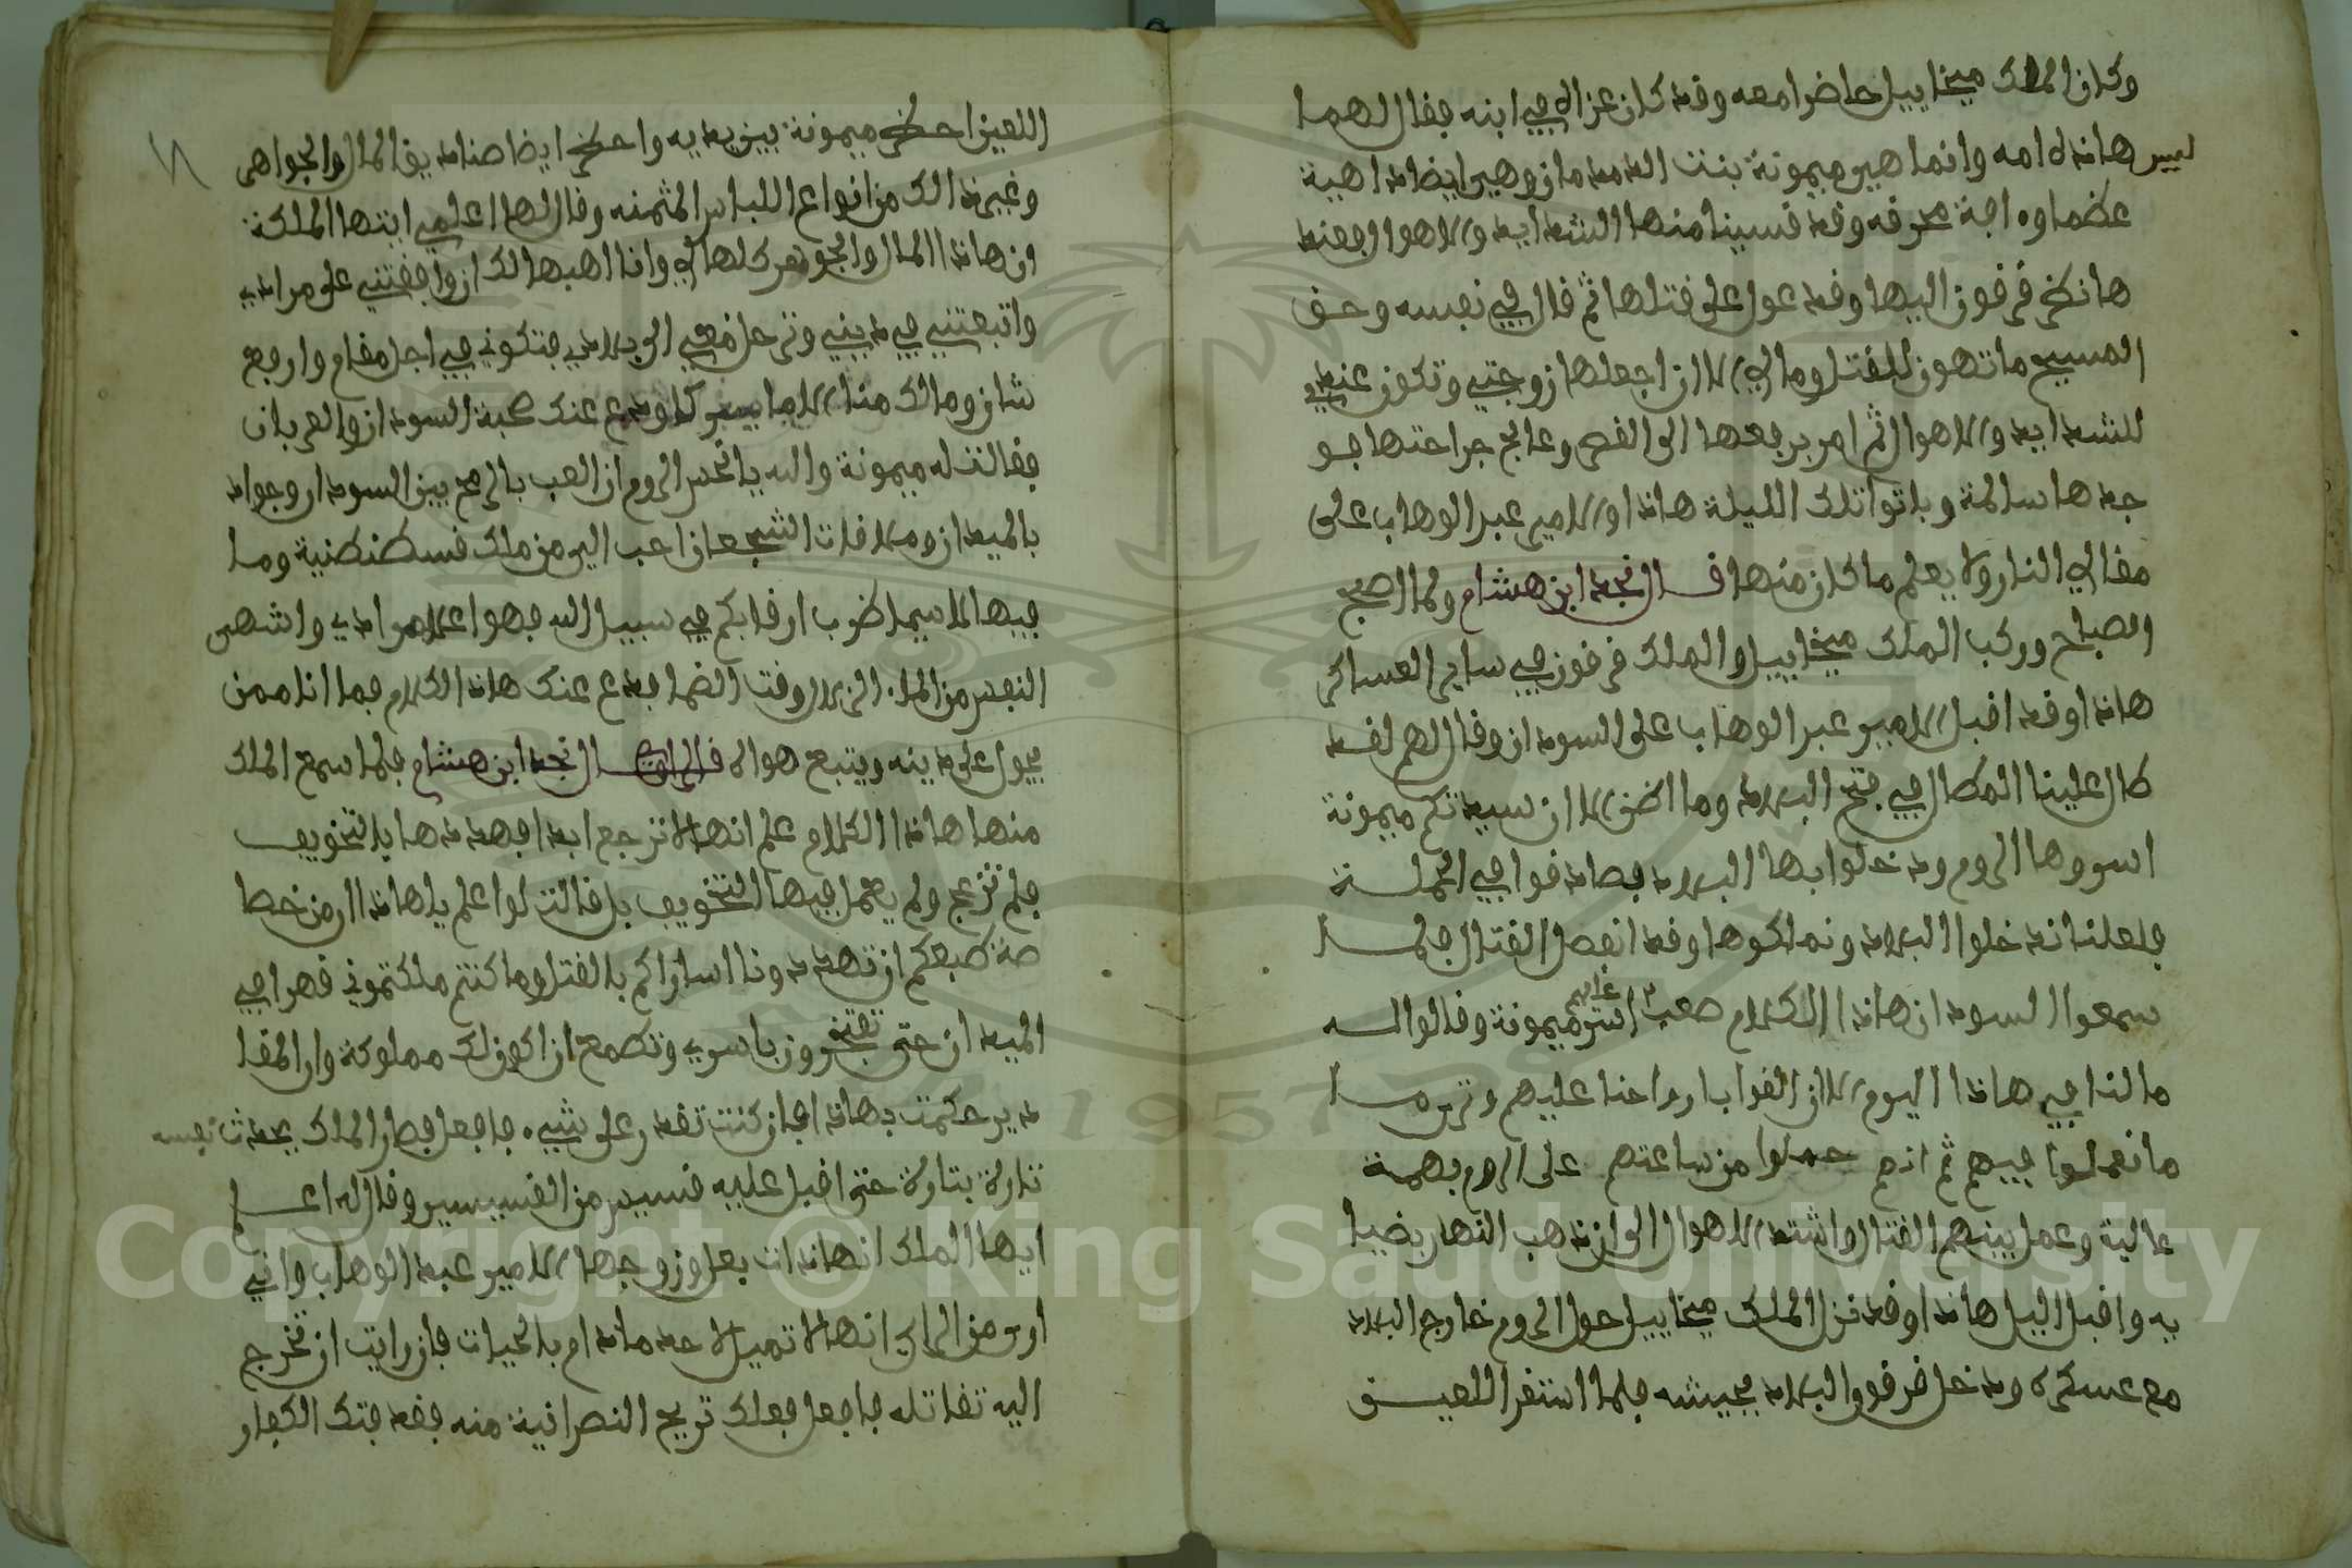 وكان الملك ميخاييل حاضرا معه وقد كان عزاه في ابنه فقال لهما
ليس هاذه امه وانما هي ميمونة بنت الدمدمان وهي ايضا داهية
عظما وءافة محرقه وقد قسينا منها الشدايد والاهوال فعند
ها نظر قرقون اليها وقد عول على قتلها ثم قال في نفسه وحق
المسيح ما تهون للقتل ومالي الا ان اجعلها زوجتي وتكون عندي
للشدايد والاهوال ثم امر برفعها الى القصر وعالج جراحتها فو
جدها سالمة وباتوا تلك الليلة هاذا والامير عبد الوهاب على
مقالي النار ولا يعلم ما كان منها قال نجد ابن هشام ولما اصبح
الصباح وركب الملك ميخاييل والملك قرقون في ساير العساكر
هاذا وقد اقبل الامير عبد الوهاب على السودان وقال لهم لقد
طال علينا المطال في فتح البلاد وما اظن الا ان سيدتكم ميمونة
اسروها الروم ودخلوا بها البلاد فصادقوا في الحملة
فلعلنا ندخلوا البلاد ونملكوها وقد انفصل القتال فلما
سمعوا السودان هاذا الكلام صعب عليهم اسر ميمونة وقالوا له
ما لنا في هاذا اليوم الا ان القوا بارواحنا عليهم وترى ما
ما نعملوا فيهم ثم انهم حملوا من ساعتهم على الروم بهمة
عالية وعمل بينهم القتال واشتد الاهوال الى ان ذهب النهار بضيا
يه واقبل اليل هاذا وقد نزل الملك ميخاييل حول الروم خارج البلاد
مع عسكره ودخل قرقون البلاد بجيشه فلما استقر اللعين
اللعين احضر ميمونة بين يديه واحضر ايضا صناديق المال والجواهر
وغير ذالك من انواع اللباس المثمنه وقال لها اعلمي ايتها الملكة
ان هاذا المال والجوهر كلها لي وانا اهبها لك ان وافقتني على مرادي
واتبعتني في ديني وترحل معي الى بلادي فتكوني في اجل مقام وارفع
شان ومالك منا الا ما يسرك ودع عنك صحبة السودان والعربان
فقالت له ميمونة والله يا نجس الروم ان العب بالرمح بين السودان وجواد
بالميدان وملاقات الشجعان احب الي من ملك قسطنطنية وما
فيها لا سيما ضرب ارقابكم في سبيل الله فهوا علا مرادي واشهى
النفس من الماء الزلال وقت الضما فدع عنك هاذا الكلام فما انا ممن
يحول على دينه ويتبع هواه قال الراوي قال نجد ابن هشام فلما سمع الملك
منها هاذا الكلام علم انها لا ترجع ابدا فهددها بالتخويف
فلم تزعج ولم يعمل فيها التخويف بل قالت لو اعلم يا هاذا ان من خصا
صة طبعكم ان تهددونا اساراكم بالقتل وما كنتم ملكتموني قهرا في
الميدان حتى تفتخرون باسري وتطمع ان اكون لك مملوكة وان المقا
دير حكمت بهاذا فان كنت تقدر على شيء فافعل فصار الملك يحدث نفسه
تارة بتارة حتى اقبل عليه قسيس من القسيسين وقال له اعلم
ايها الملك ان هاذه ذات بعل وزوجها الامير عبد الوهاب واني
ارى من الراي انها لا تميل لاحد ما دام بالحيات فان رايت ان تخرج
اليه تقاتله فافعل فعلك تريح النصرانية منه فقد فتك الكفار